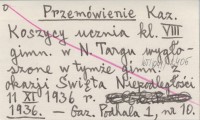 Przemówienie Kaz.
Koszycy ucznia kl. VIII
gimn. w N. Targu wygło-
szone w tymże gimn. z
okazji Święta Niepodległości
11 XI 1936 r.
1936. — Gaz. Podhala 1, nr 10.